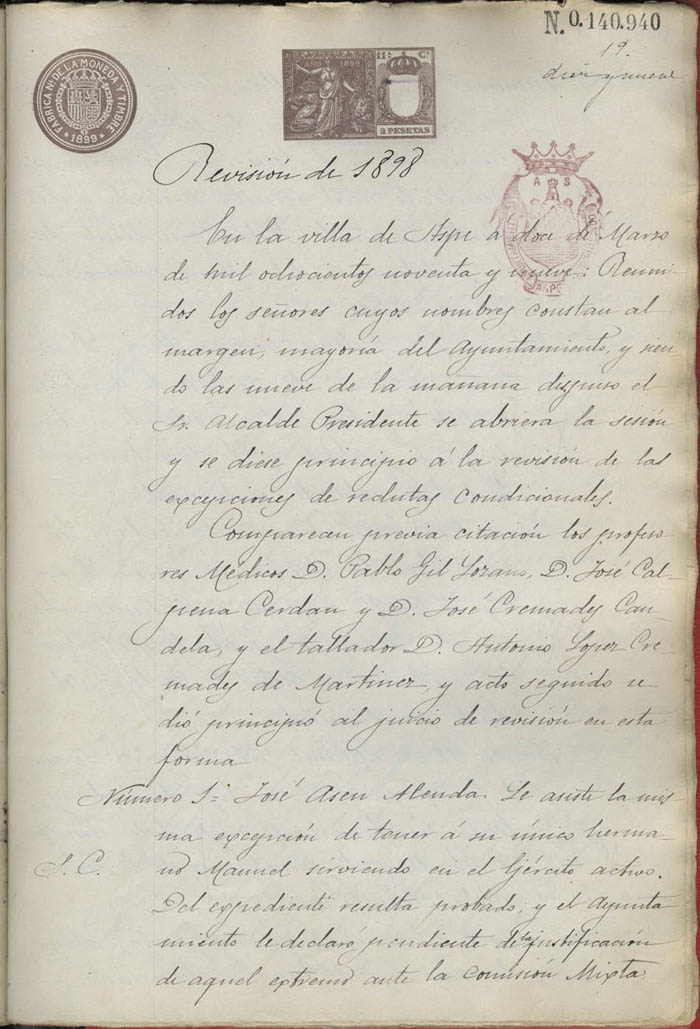 N. 0.140.940
19.
diez y nueve
FABRICA NAL DE LA MONEDA Y TIMBRE
1899
AÑO 1899
11ª Cª
2 PESETAS
A S
ASPE
Revisión de 1898
En la villa de Aspe a doce de Marzo
de mil ochocientos noventa y nueve: Reuni-
dos los señores cuyos nombres constan al
margen, mayoría del Ayuntamiento, y sien-
do las nueve de la mañana dispuso el
Sr. Alcalde Presidente se abriera la sesión
y se diese principio á la revisión de las
excepciones de reclutas condicionales.
Comparecen previa citación los profeso-
res Médicos D. Pablo Gil Lozano, D. José Cal-
pena Cerdan y D. José Cremades Can-
dela, y el tallador D. Antonio Lopez Cre-
mades de Martinez, y acto seguido se
dió principió al juicio de revisión en esta
forma
Número 1º José Asen Alenda. Le asiste la mis-
ma excepción de tener á su único herma-
S. C. no Manuel sirviendo en el Ejército activo.
Del expediente resulta probado, y el Ayunta
miento le declaró pendiente de la justificación
de aquel extremo ante la Comisión Mixta.